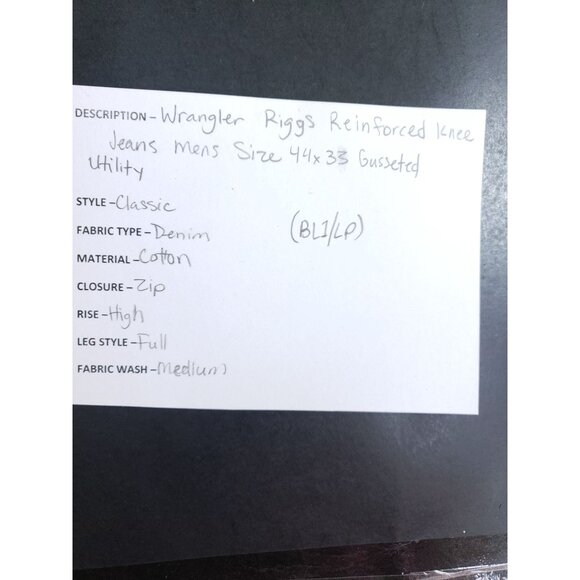 DESCRIPTION - Wrangler Riggs Reinforced Knee
Jeans Mens Size 44x33 Gusseted
Utility
STYLE - Classic
FABRIC TYPE - Denim (BL1/LP)
MATERIAL - Cotton
CLOSURE - Zip
RISE - High
LEG STYLE - Full
FABRIC WASH - Medium